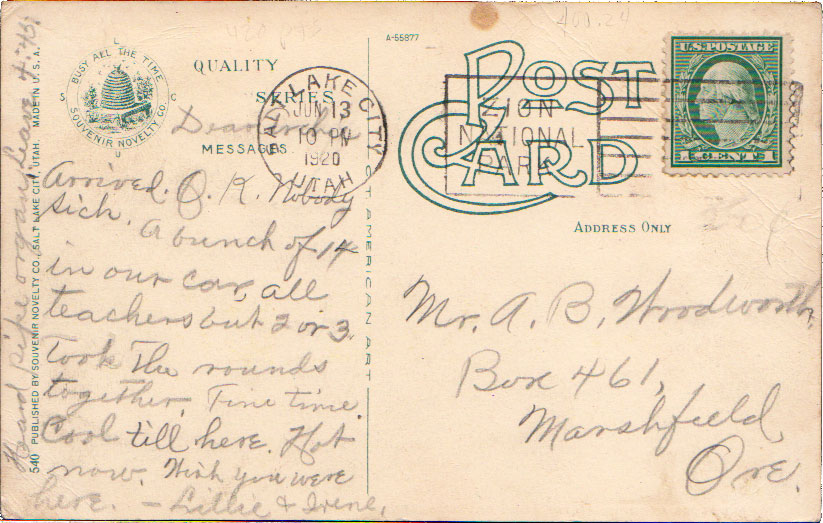 A-55877
POST
CARD
QUALITY
SERIES
MESSAGES
BUSY ALL THE TIME
S L C U
SOUVENIR NOVELTY CO.
SALT LAKE CITY
JUN 13
10 PM
1920
UTAH
ZION
NATIONAL
PARK
U.S. POSTAGE
1 CENT 1
ADDRESS ONLY
Arrived O. K. Nobody
sick. A bunch of 14
in our car, all
teachers but 2 or 3.
Took the rounds
together. Fine time.
Cool till here. Hot
now. Wish you were
here. - Lillie & Irene.
Heard pipe organ. Leave 4:45.
Mr. A. B. Woodworth,
Box 461,
Marshfield,
Ore.
540 PUBLISHED BY SOUVENIR NOVELTY CO., SALT LAKE CITY, UTAH. MADE IN U. S. A.
AMERICAN ART